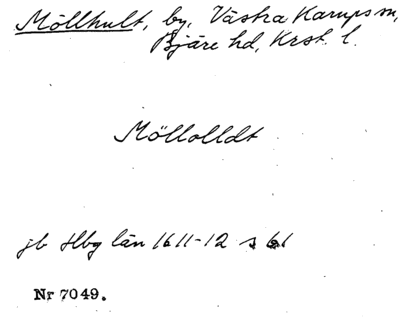 Möllhult, by, Västra Karups sn,
Bjäre hd, Krst. l.
Möllolldt
jb Hbg län 1611-12 s 61
Nr 7049.